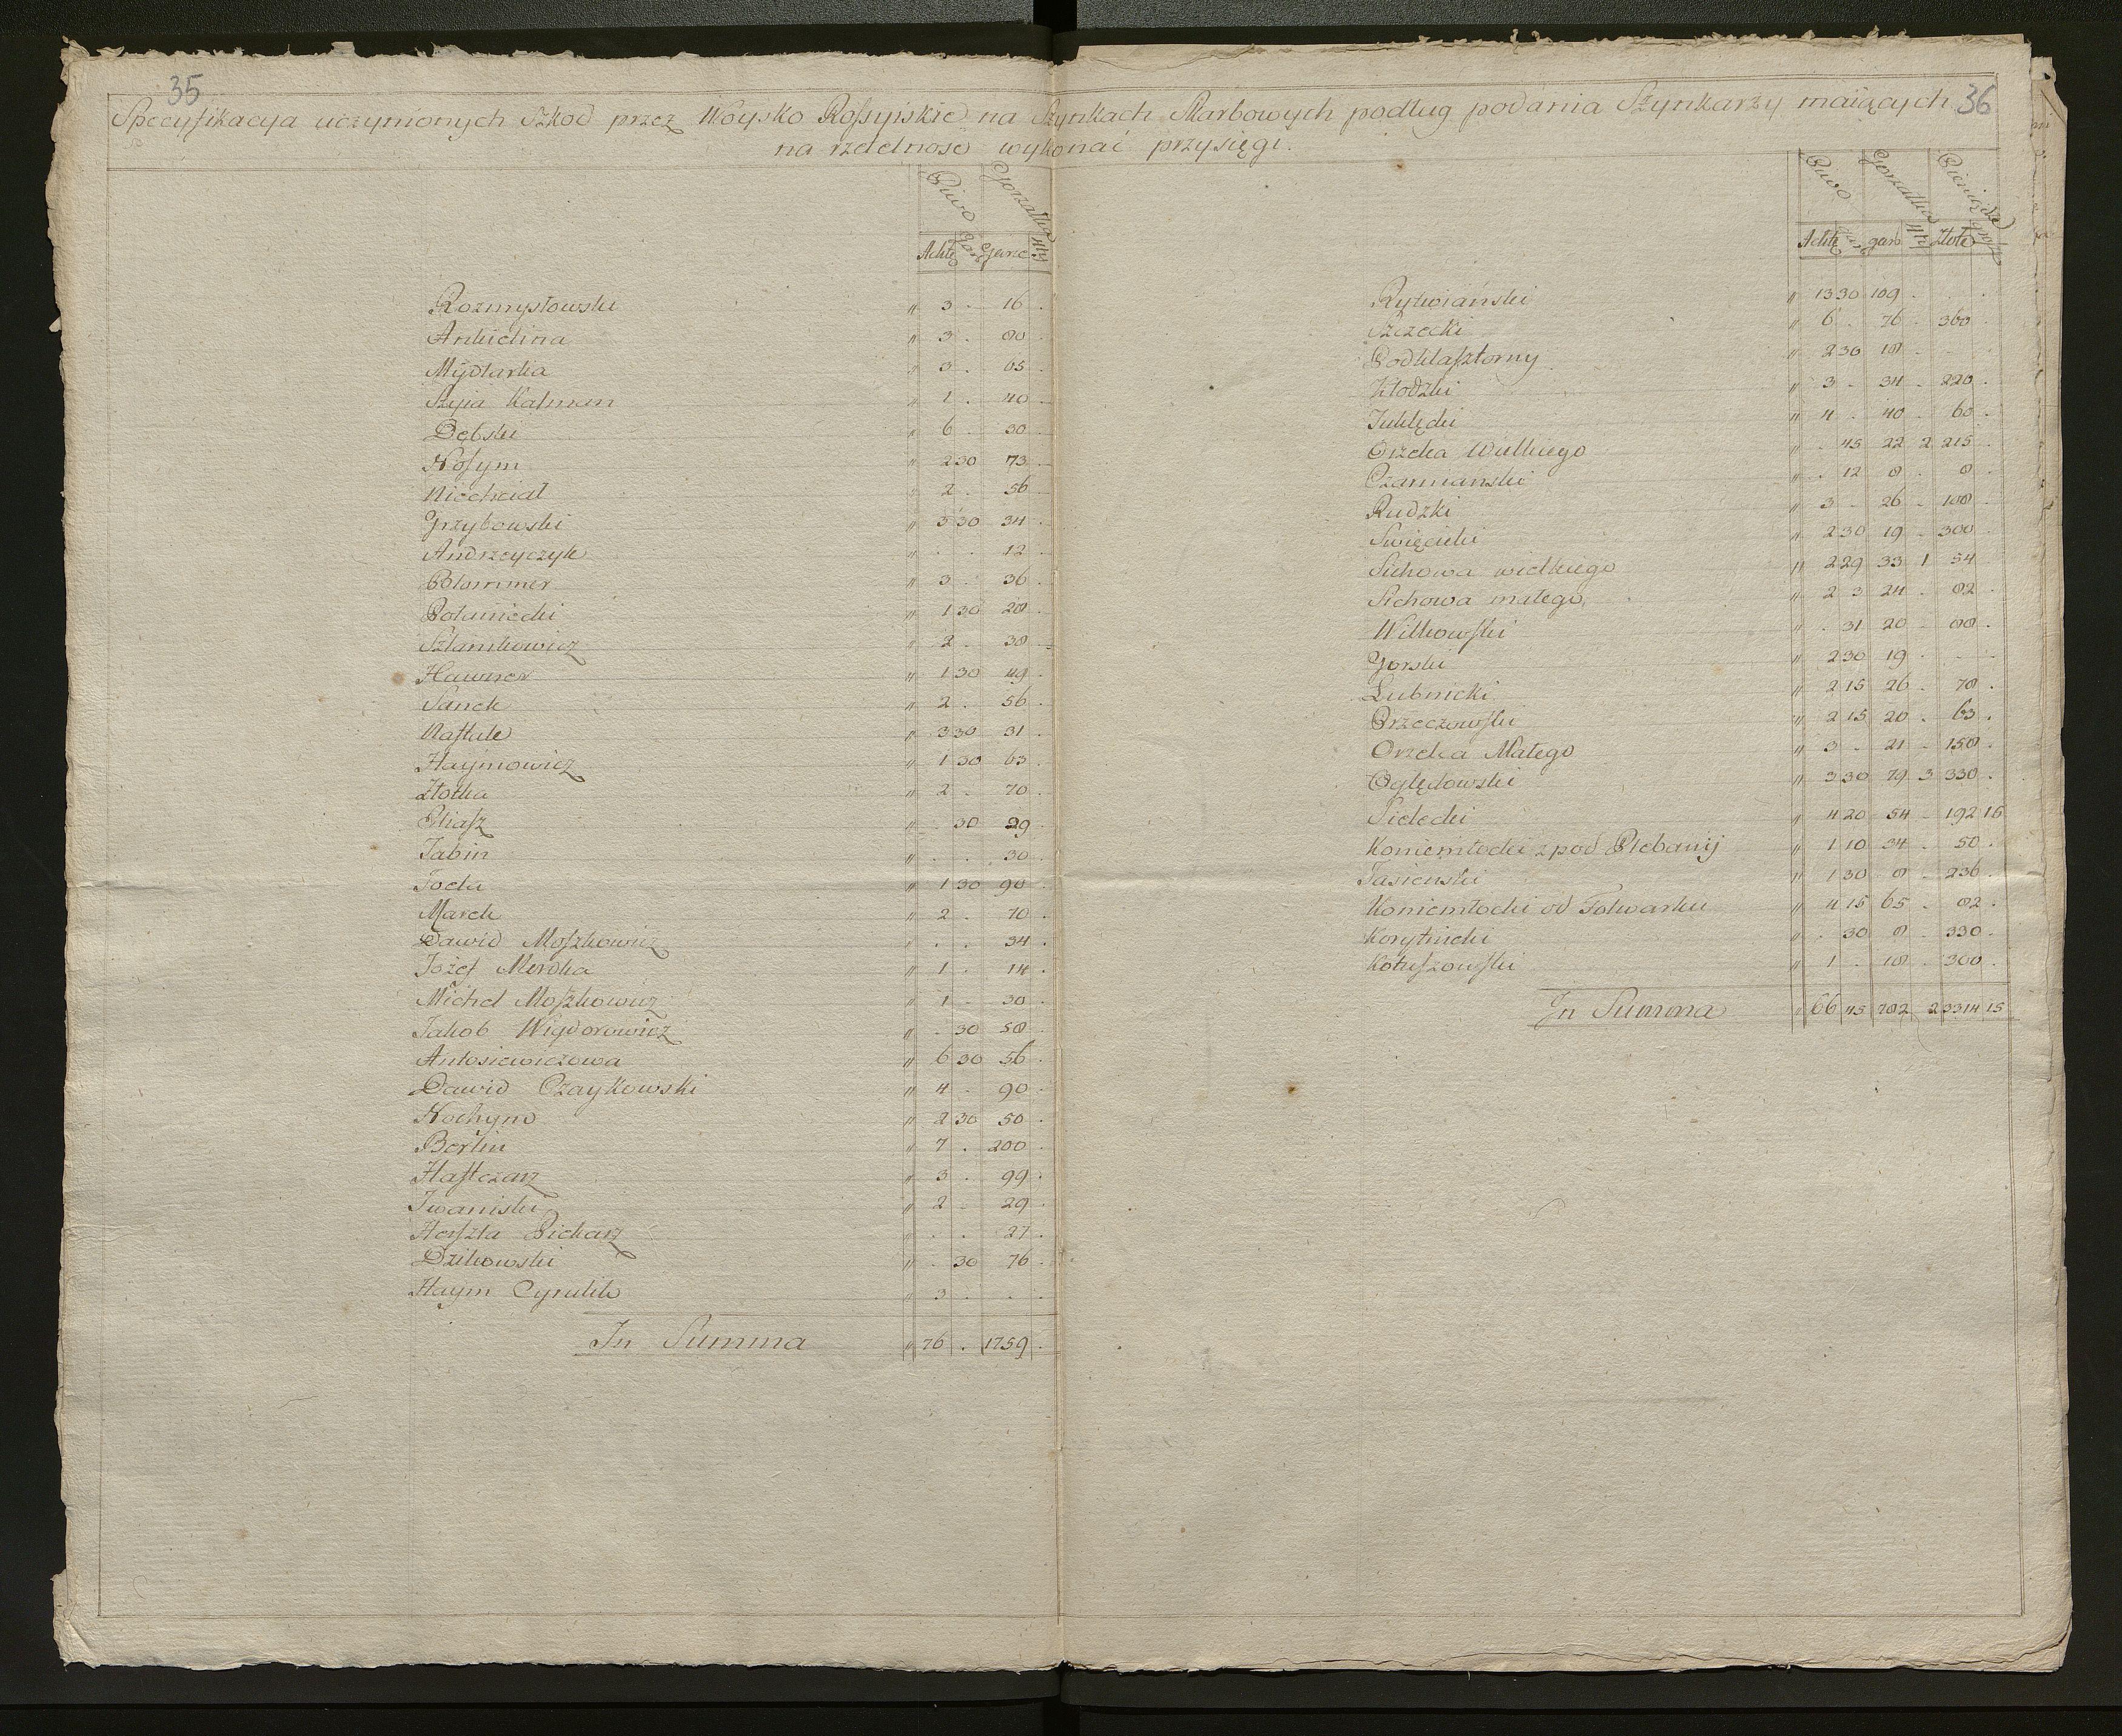 35
36
Specyfikacya uczynionych Szkod przez Woysko Rossyiskie na Szynkach Skarbowych podług podania Szynkarzy maiących
na rzetelność wykonać przysięgi.
Piwo Gorzałka
Achtle Garc Garce
Rozmysłowski " 3 . 16 .
" 3 . 80 .
Mydlarka " 3 . 65 .
Szyia Kalman " 1 . 40 .
Dębski " 6 . 30 .
Nosym " 2 30 73 .
Niechciał " 2 . 56 .
Grzybowski " 3 30 34 .
Andrzeyczyk " . . 12 .
Blummer " 3 . 36 .
Połaniecki " 1 30 28 .
Szlamkowicz " 2 . 38 .
Hawner " 1 30 49 .
Sanek " 2 . 56 .
" 3 30 31 .
Haymowicz " 1 30 63 .
Złotka " 2 . 70 .
Eliasz " . 30 29 .
Jabin " . . 30 .
Joda " 1 30 90 .
Marek " 2 . 70 .
Dawid Moszkowicz " . . 34 .
Jozef Merdka " 1 . 14 .
Michel Moszkowicz " 1 . 30 .
Jakob Wigdorowicz " . 30 58 .
Antosiewiczowa " 6 30 56 .
Dawid Czaykowski " 4 . 90 .
Nochym " 2 30 50 .
Berlin " 7 . 200 .
" 3 . 99 .
Iwaniski " 2 . 29 .
Herszla Piekarz " . . 27 .
Dzikowski " . 30 76 .
Haym Cyrulik " 3 . . .
In Summa " 76 . 1759 .
Piwo Gorzałka Pieniądze
Achtle garc garc Złote
Rytwiański " 13 30 109 . . .
Szczecki " 6 . 76 . 360 .
Podklasztorny " 2 30 18 . . .
Kłodzki " 3 . 34 . 220 .
" 4 . 40 . 60 .
Orzelca Wielkiego " . 45 22 2 215 .
Czarniański " . 12 8 . 8 .
Rudzki " 3 . 26 . 108 .
Swięcicki " 2 30 19 . 300 .
Sichowa wielkiego " 2 29 33 1 54
Sichowa małego " 2 3 24 . 82 .
Wilkowski " . 31 20 . 88 .
Gorski " 2 30 19 . . .
Lubnicki " 2 15 26 . 78 .
Przeczowski " 2 15 20 . 63 .
Orzelca Małego " 3 . 21 . 158 .
Oględowski " 3 30 79 3 330 .
Sielecki " 4 20 54 . 192 15
Koniemłocki z pod Plebanij " 1 10 34 . 50 .
Jasieński " 1 30 8 . 236 .
Koniemłocki od Folwarku " 4 15 65 . 82 .
Korytnicki " . 30 8 . 330 .
Kotuszowski " 1 . 18 . 300 .
In Summa " 66 45 782 2 3314 15